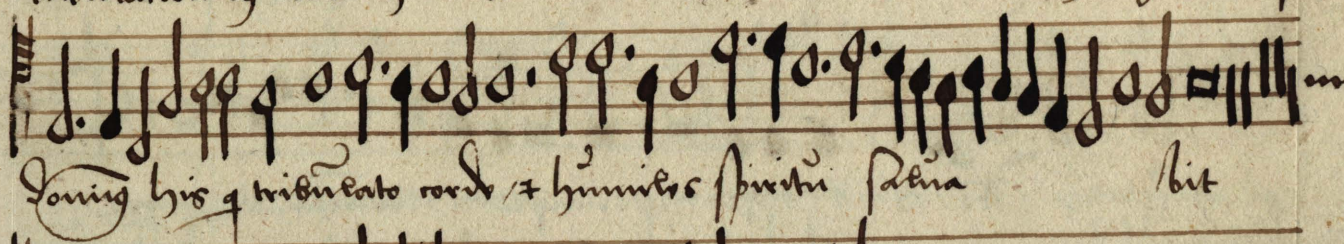 dominꝰ his q tribulato corde ⁊ humiles spiritu salua bit